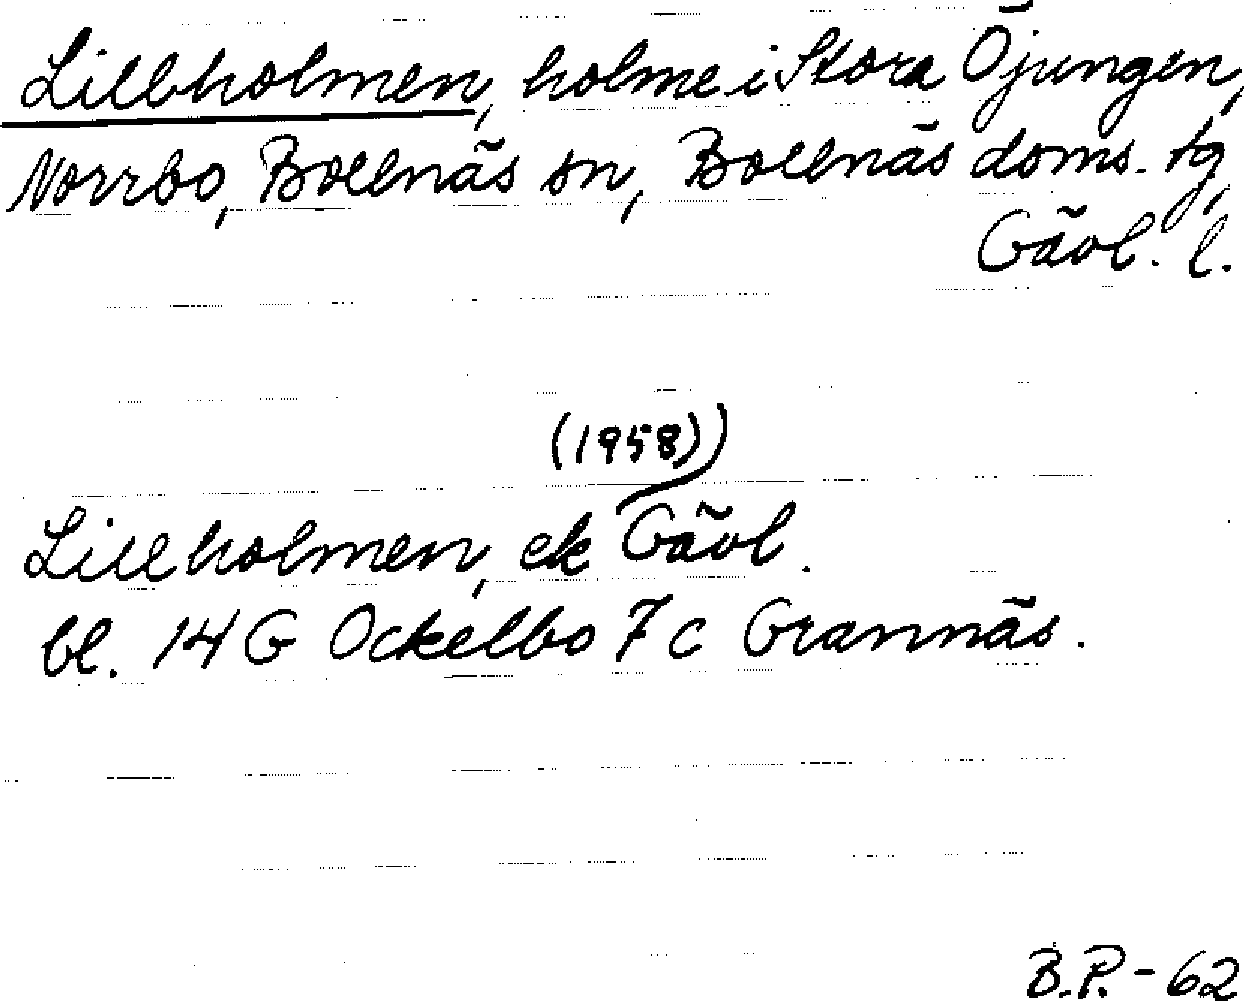 Lillholmen, holme i Stora Öjungen,
Norrbo, Bollnäs sn, Bollnäs doms. tg,
Gävl. l.
(1958))
Lillholmen, ek Gävl.
bl. 14 G Ockelbo 7 c Grannäs.
B.P.-62